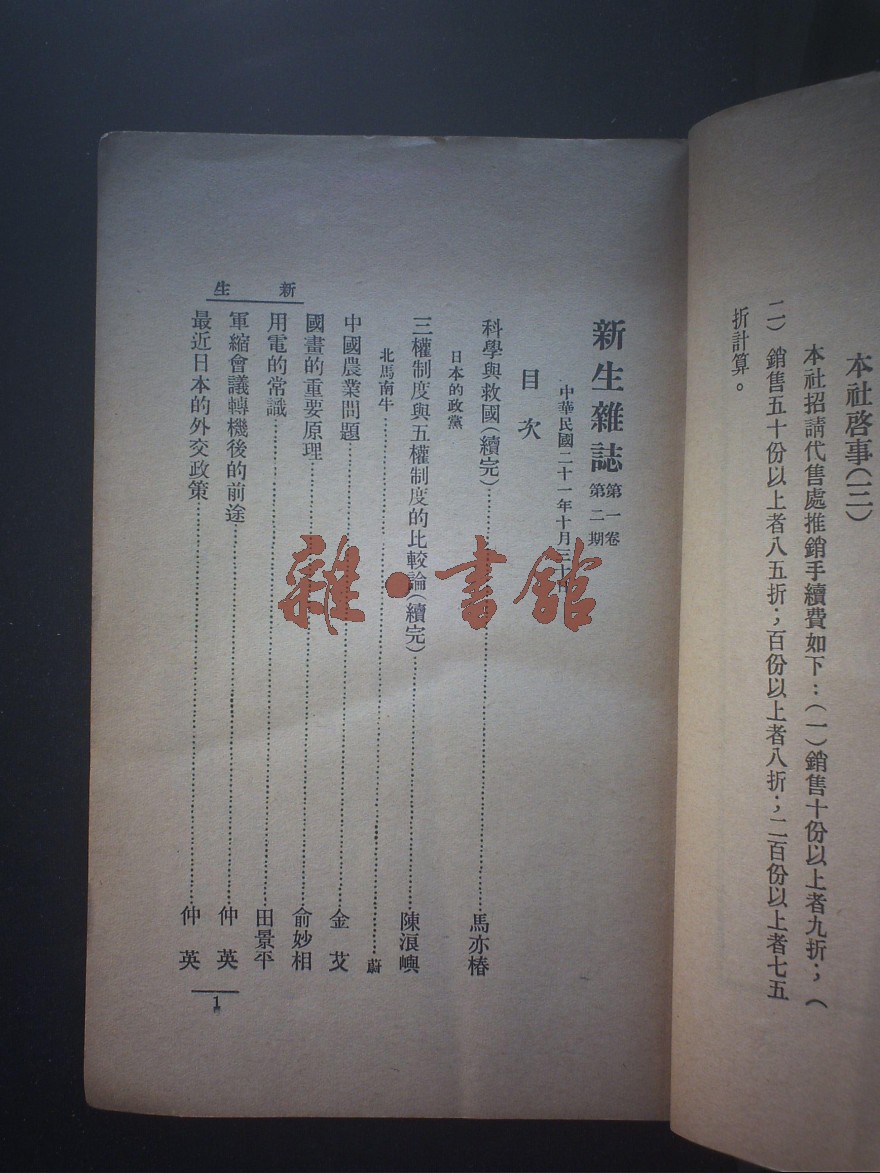 本社啓事(三)
本社招請代售處推銷手續費如下：(一)銷售十份以上者九折；(
二)銷售五十份以上者八五折；百份以上者八折；二百份以上者七五
折計算。
新生雜誌 第一卷 第二期
中華民國二十一年十月三十
目次
科學與救國(續完)……馬亦椿
日本的政黨
三權制度與五權制度的比較論(續完)……陳浪嶼
北馬南牛……蔚
中國農業問題……金艾
國畫的重要原理……俞妙相
用電的常識……田景平
軍縮會議轉機後的前途……仲英
最近日本的外交政策……仲英
新生
1
雜·書館